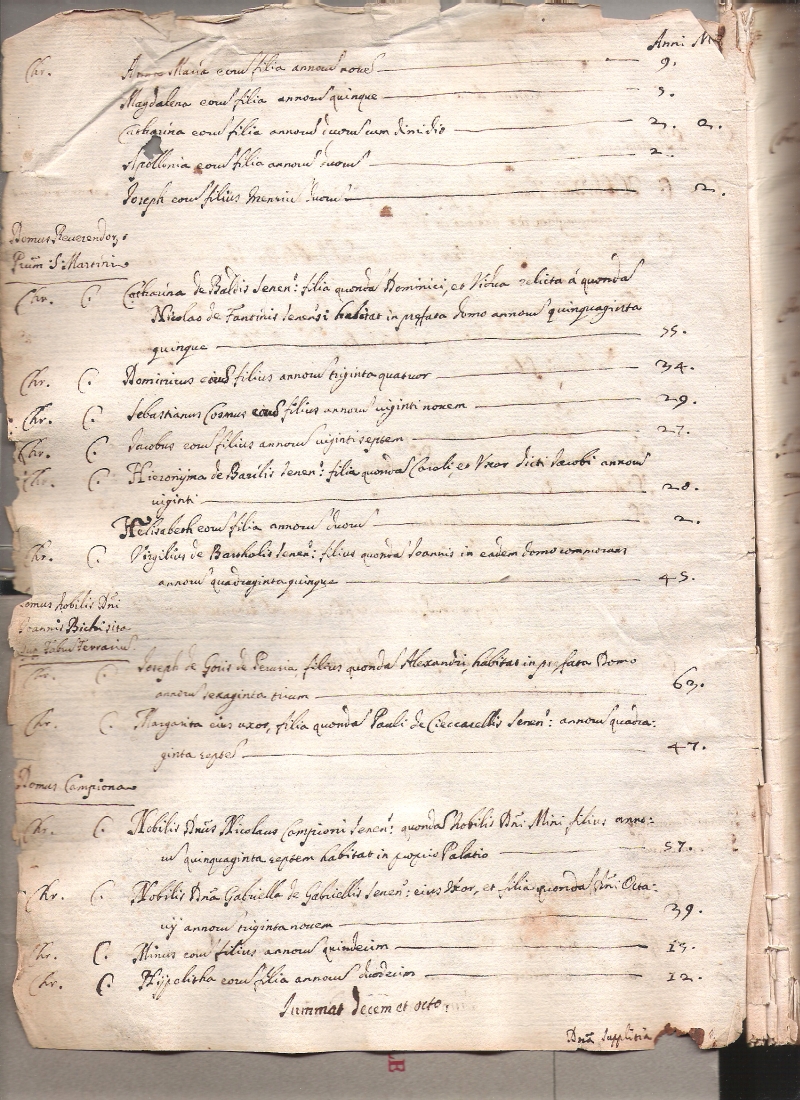 Anni M
Chr. Anna Maria eorum filia annorum novem 9.
Magdalena eorum filia annorum quinque 5.
Catharina eorum filia annorum duorum cum dimidio 2. 2.
Apollonia eorum filia annorum duorum 2.
Joseph eorum filius mensium duorum 2.
Domus Reverendor.
Prum S. Martini
Chr. C. Catharina de Baldis Senen: filia quondam Dominici, et Vidua relicta à quondam
Nicolao de Fantinis Senensi habitat in prefata domo annorum quinquaginta
quinque 55.
Chr. C. Dominicus eius filius annorum triginta quatuor 34.
Chr. C. Sebastianus Cosmus eius filius annorum viginti novem 29.
Chr. C. Jacobus eorum filius annorum viginti septem 27.
Chr. C. Hieronyma de Basilis Senen: filia quondam Caroli, et Uxor dicti Jacobi annorum
viginti 20.
Helisabeth eorum filia annorum duorum 2.
Chr. C. Virgilius de Bartholis Senen: filius quondam Joannis in eadem domo commorans
annorum quadraginta quinque 45.
Domus Nobilis Dni
Joannis Bichi sita
Chr. C. Joseph de Goris de Perusia, filius quondam Alexandri, habitat in prefata Domo
annorum sexaginta trium 63.
Chr. C. Margarita eius uxor, filia quondam Pauli de Cieccarellis Senen: annorum quadra:
ginta septem 47.
Domus Campiona
Chr. C. Nobilis Dnus Nicolaus Campioni Senen: quondam Nobilis Dni Mini filius anno:
rum quinquaginta septem habitat in proprio Palatio 57.
Chr. C. Nobilis Dna Gabriella de Gabriellis Senen: eius Uxor, et filia quondam Dni Octa:
vij annorum triginta novem 39.
Chr. C. Minus eorum filius annorum quindecim 15.
Chr. C. Hypolitha eorum filia annorum duodecim 12.
Summat decem et octo
Dna Supplitia